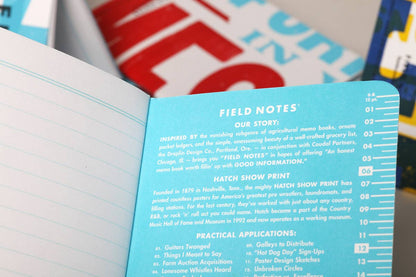 FIELD NOTES
OUR STORY:
INSPIRED BY the vanishing subgenre of agricultural memo books, ornate
pocket ledgers, and the simple, unassuming beauty of a well-crafted grocery list,
the Draplin Design Co., Portland, Ore. — in conjunction with Coudal Partners,
Chicago, Ill. — brings you "FIELD NOTES" in hopes of offering "An honest
memo book worth fillin' up with GOOD INFORMATION."
HATCH SHOW PRINT
Founded in 1879 in Nashville, Tenn., the mighty HATCH SHOW PRINT has
printed countless posters for America's greatest pro wrestlers, roustabouts, and
filling stations. For the last century, they've worked with just about any country,
R&B, or rock 'n' roll act you could name. Hatch became a part of the Country
Music Hall of Fame and Museum in 1992 and now operates as a working museum.
PRACTICAL APPLICATIONS:
01. Guitars Twanged
02. Things I Meant to Say
03. Farm Auction Acquisitions
04. Lonesome Whistles Heard
09. Galleys to Distribute
10. "Hot Dog Day" Sign-Ups
11. Poster Design Sketches
12. Unbroken Circles
06
12